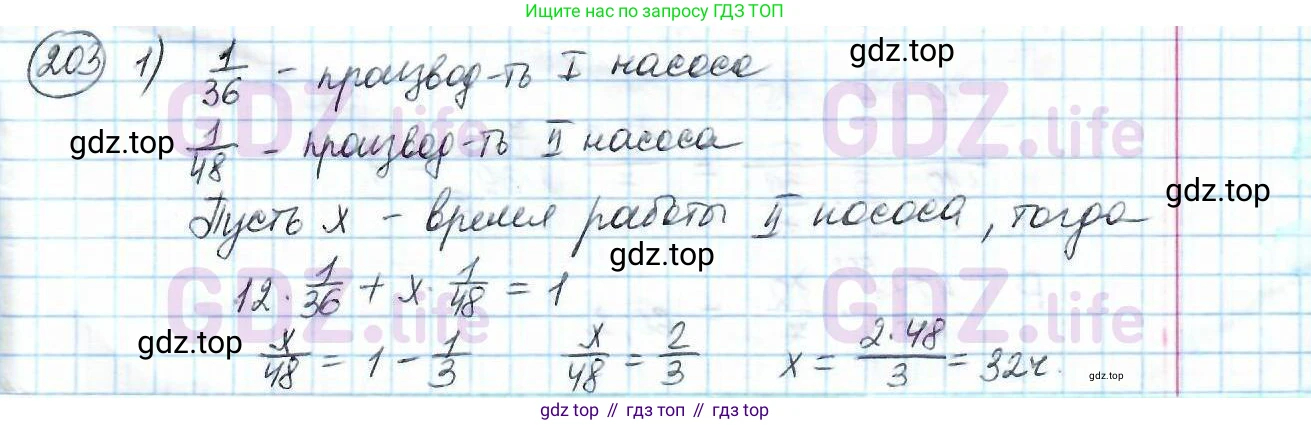 Ищите нас по запросу ГДЗ ТОП
203 1) 1/36 - производ-ть I насоса
gdz.top
GDZ.life GDZ.life
gdz.top 1/48 - производ-ть II насоса
gdz.top
Пусть x - время работы II насоса, тогда
gdz.top
12 · 1/36 + x · 1/48 = 1
GDZ.life GDZ.life
gdz.top
x/48 = 1 - 1/3 x/48 = 2/3 x = 2·48/3 = 32ч.
gdz.top
gdz top // гдз топ // gdz top